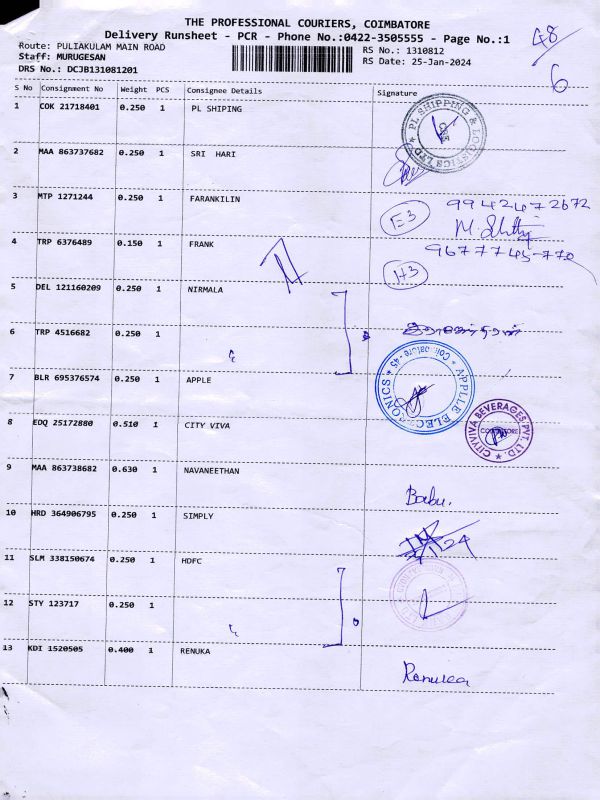 THE PROFESSIONAL COURIERS, COIMBATORE
Delivery Runsheet - PCR - Phone No.:0422-3505555 - Page No.:1
48
6
Route: PULIAKULAM MAIN ROAD
Staff: MURUGESAN
DRS No.: DCJB131081201
RS No.: 1310812
RS Date: 25-Jan-2024
S No Consignment No Weight PCS Consignee Details Signature
1 COK 21718401 0.250 1 PL SHIPING
PL SHIPPING & LOGISTICS LTD
2 MAA 863737682 0.250 1 SRI HARI
3 MTP 1271244 0.250 1 FARANKILIN
E3 9942472672
4 TRP 6376489 0.150 1 FRANK
H3 9677745-770
5 DEL 121160209 0.250 1 NIRMALA
6 TRP 4516682 0.250 1
7 BLR 695376574 0.250 1 APPLE
APPLLE ELECTRONICS Coimbatore - 45
8 EDQ 25172880 0.510 1 CITY VIVA
CITYVIVA BEVERAGES PVT. LTD. COIMBATORE
9 MAA 863738682 0.630 1 NAVANEETHAN
Babu.
10 HRD 364906795 0.250 1 SIMPLY
24
11 SLM 338150674 0.250 1 HDFC
12 STY 123717 0.250 1
13 KDI 1520505 0.400 1 RENUKA
Renuka